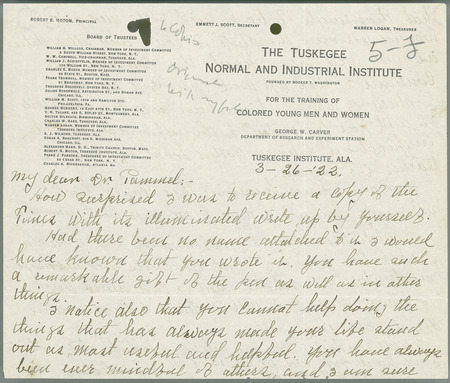 ROBERT R. MOTON, PRINCIPAL
EMMETT J. SCOTT, SECRETARY
WARREN LOGAN, TREASURER
BOARD OF TRUSTEES
WILLIAM G. WILLCOX, CHAIRMAN, MEMBER OF INVESTMENT COMMITTEE
3 SOUTH WILLIAM STREET, NEW YORK, N. Y.
W. W. CAMPBELL, VICE-CHAIRMAN, TUSKEGEE, ALA.
WILLIAM J. SCHIEFFELIN, MEMBER OF INVESTMENT COMMITTEE
170 WILLIAM ST., NEW YORK, N. Y.
CHARLES E. MASON, MEMBER OF INVESTMENT COMMITTEE
30 STATE ST., BOSTON, MASS.
FRANK TRUMBULL, MEMBER OF INVESTMENT COMMITTEE
NEW YORK, N. Y.
THEODORE ROOSEVELT, OYSTER BAY, N. Y.
JULIUS ROSENWALD,
CHICAGO, ILL.
PHILADELPHIA, PA.
CHARLES W. HARE, TUSKEGEE, ALA.
WARREN LOGAN, MEMBER OF INVESTMENT COMMITTEE
TUSKEGEE INSTITUTE, ALA.
A. J. WILBORN, TUSKEGEE, ALA.
CHICAGO, ILL.
ROBERT R. MOTON, TUSKEGEE INSTITUTE, ALA.
original
with
5-J
THE TUSKEGEE
NORMAL AND INDUSTRIAL INSTITUTE
FOUNDED BY BOOKER T. WASHINGTON
FOR THE TRAINING OF
COLORED YOUNG MEN AND WOMEN
GEORGE W. CARVER
DEPARTMENT OF RESEARCH AND EXPERIMENT STATION
TUSKEGEE INSTITUTE, ALA.
3-26-'22.
My dear Dr. Pammel:-
How surprised I was to receive a copy of the
Times with its illuminated write up by yourself.
Had there been no name attached to it I would
have known that you wrote it. You have such
a remarkable gift of the pen as well as in other
things.
I notice also that you cannot help doing the
things that has always made your life stand
out as most useful and helpful. You have always
been ever mindful of others, and I am sure